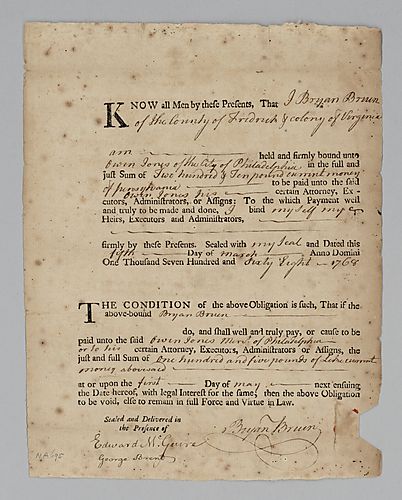 KNOW all Men by these Presents, That I Bryan Bruin
of the County of Fredrick & colony of Virginia
am held and firmly bound unto
Owen Jones of the City of Philadelphia in the full and
just Sum of Two hundred & Ten pound current money
of pensylvania to be paid unto the said
Owen Jones his certain Attorney, Ex-
ecutors, Administrators, or Assigns: To the which Payment well
and truly to be made and done, I bind my self my
Heirs, Executors and Administrators,
firmly by these Presents. Sealed with my Seal and Dated this
fifth Day of march Anno Domini
One Thousand Seven Hundred and Sixty Eight 1768
THE CONDITION of the above Obligation is such, That if the
above-bound Bryan Bruin
do, and shall well and truly pay, or cause to be
paid unto the said Owen Jones Mert. of Philadelphia
or to his certain Attorney, Executors, Administrators or Assigns, the
just and full Sum of One hundred and five pounds of Like current
money abovesaid
at or upon the first Day of may next ensuing
the Date hereof, with legal Interest for the same; then the above Obligation
to be void, else to remain in full Force and Virtue in Law.
Sealed and Delivered in
the Presence of
Bryan Bruin
Edward McGuire
George Brent